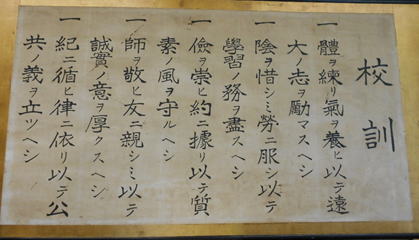 校訓
一體ヲ練リ氣ヲ養ヒ以テ遠
大ノ志ヲ勵マスヘシ
一陰ヲ惜シミ勞ニ服シ以テ
學習ノ務ヲ盡スヘシ
一儉ヲ崇ヒ約ニ據リ以テ質
素ノ風ヲ守ルヘシ
一師ヲ敬ヒ友ニ親シミ以テ
誠實ノ意ヲ厚クスヘシ
一紀ニ循ヒ律ニ依リ以テ公
共ノ義ヲ立ツヘシ